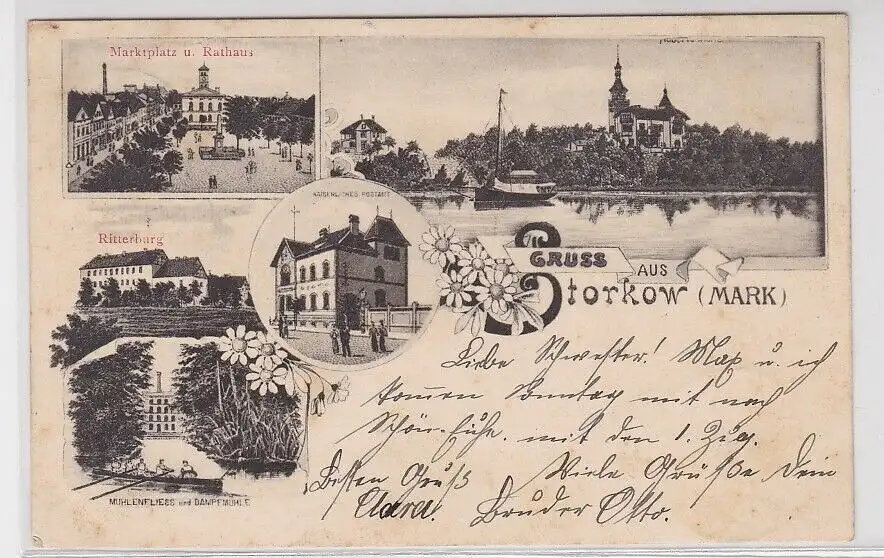 Marktplatz u. Rathaus
Ritterburg
KAISERLICHES POSTAMT
GRUSS
AUS
Storkow (MARK)
MÜHLENFLIESS und DAMPFMÜHLE
Liebe Schwester! Max u. ich
kommen Sonntag mit nach
mit den 1. Zug.
Besten Gruß Viele Grüße Dein
Clara. Bruder Otto.